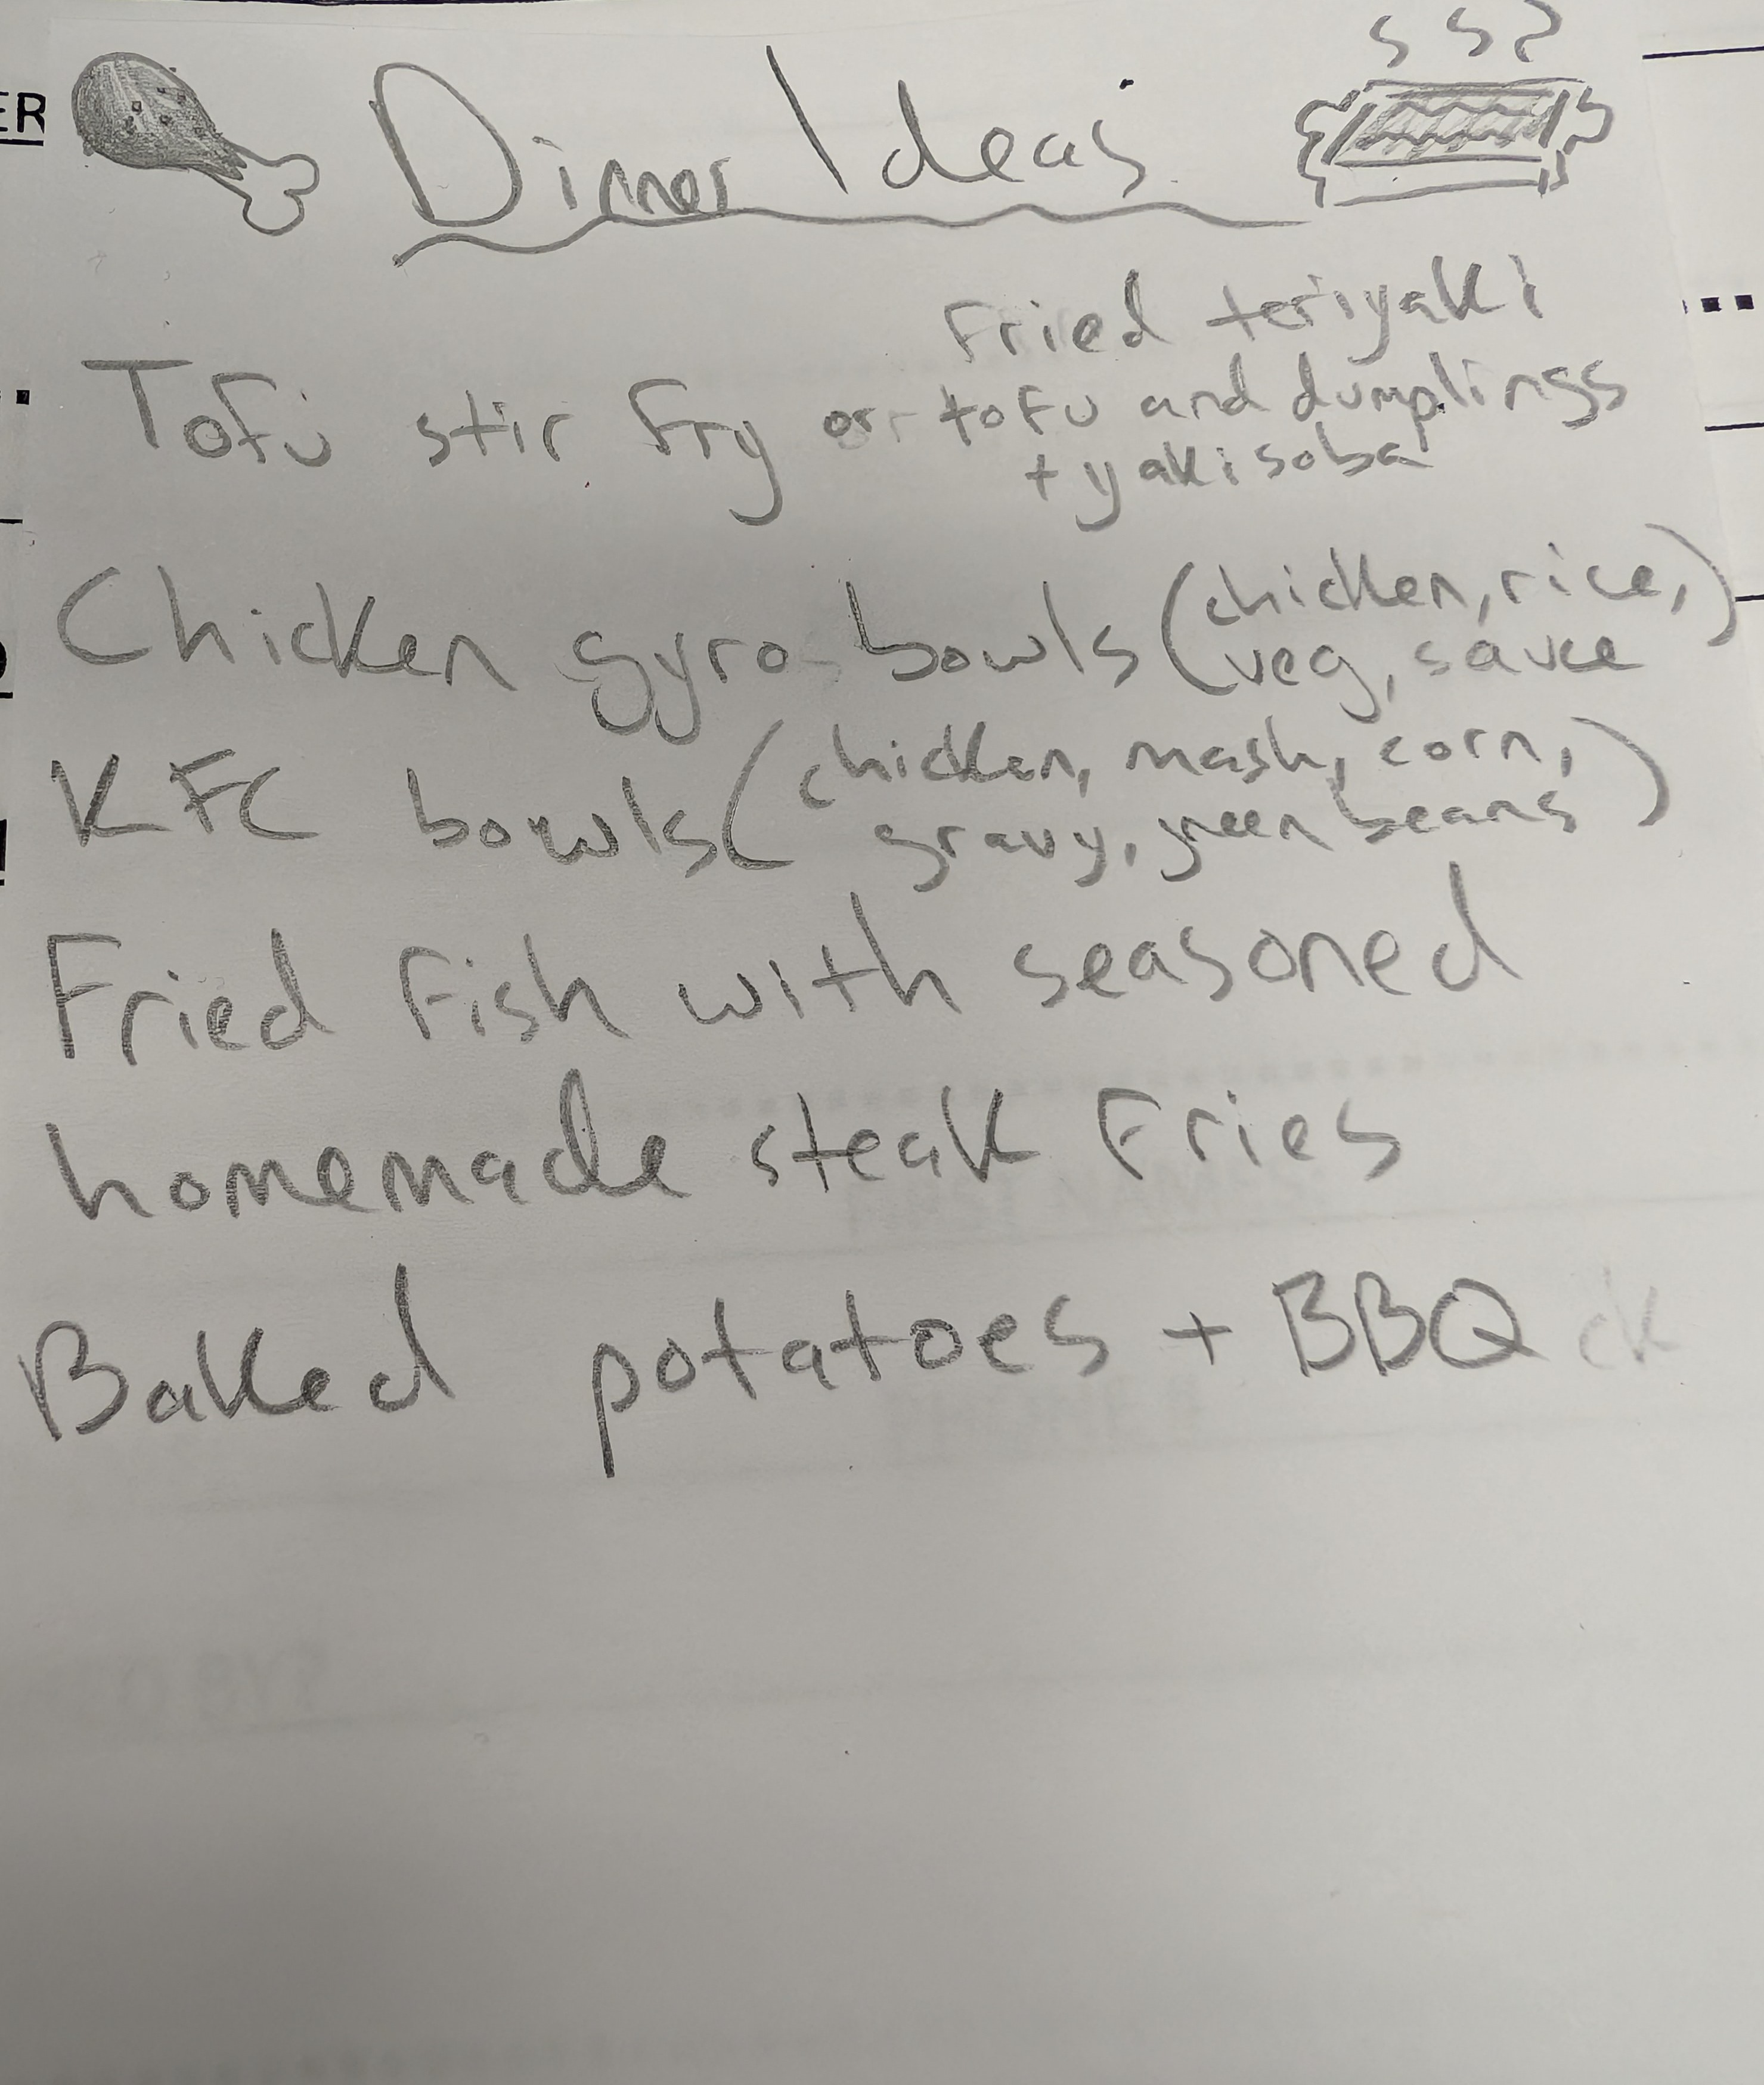 ER
Dinner Ideas
Tofu stir fry or Fried teriyaki
tofu and dumplings
+ yakisoba
Chicken gyro bowls (chicken, rice,
veg, sauce)
KFC bowls (chicken, mash, corn,
gravy, green beans)
Fried Fish with seasoned
homemade steak Fries
Baked potatoes + BBQ ck